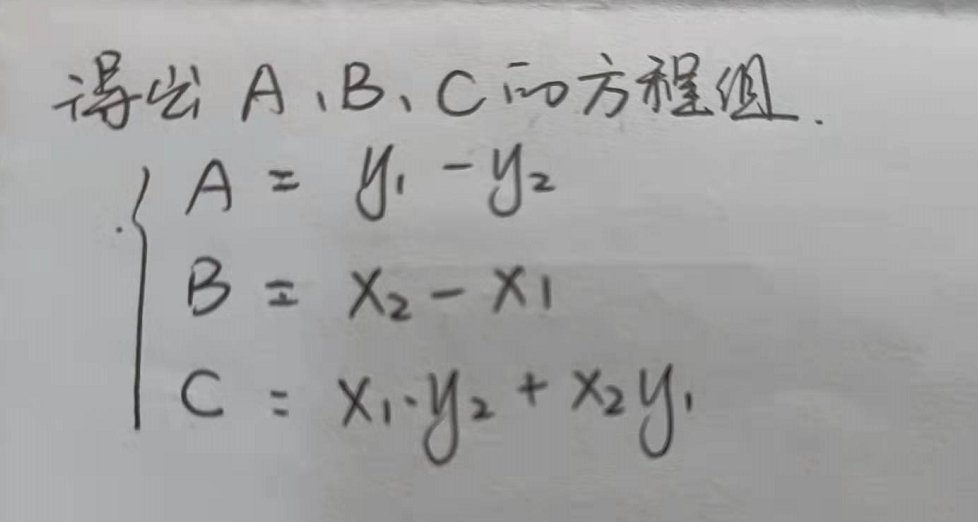 得出 A、B、C 的方程组.
A = y₁ - y₂
B = x₂ - x₁
C = x₁·y₂ + x₂y₁